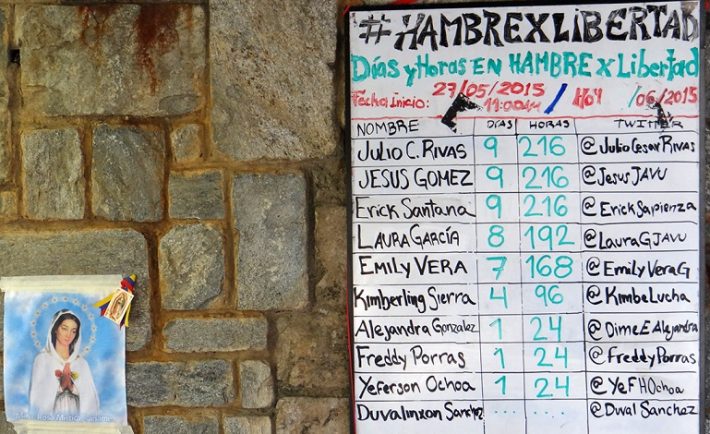 #HAMBREXLIBERTAD
Días y Horas EN HAMBRE x Libertad
Fecha Inicio: 27/05/2015 11:00AM / HOY /06/2015
NOMBRE DÍAS HORAS TWITTER
JULIO C. RIVAS 9 216 @JulioCesarRivas
JESUS GOMEZ 9 216 @JesusJAVU
Erick Santana 9 216 @ErickSapienza
LAURA GARCÍA 8 192 @LauraGJAVU
EMILY VERA 7 168 @EmilyVeraG
Kimberling Sierra 4 96 @KimbeLucha
Alejandra Gonzalez 1 24 @DimeEAlejandra
Freddy Porras 1 24 @FreddyPorras
Yeferson Ochoa 1 24 @YeFHOchoa
Duvalinxon Sanchez .... .... @Dwal Sanchez
Rosa Mística